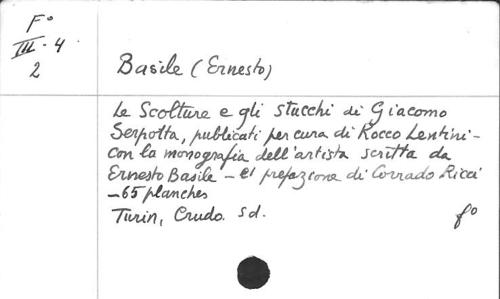 F°
III - 4
2
Basile (Ernesto)
Le Scolture e gli stucchi di Giacomo
Serpotta, publicati per cura di Rocco Lentini -
con la monografia dell'artista scritta da
Ernesto Basile - et prefazione di Corrado Ricci
- 65 planches
Turin, Crudo. sd.
f°